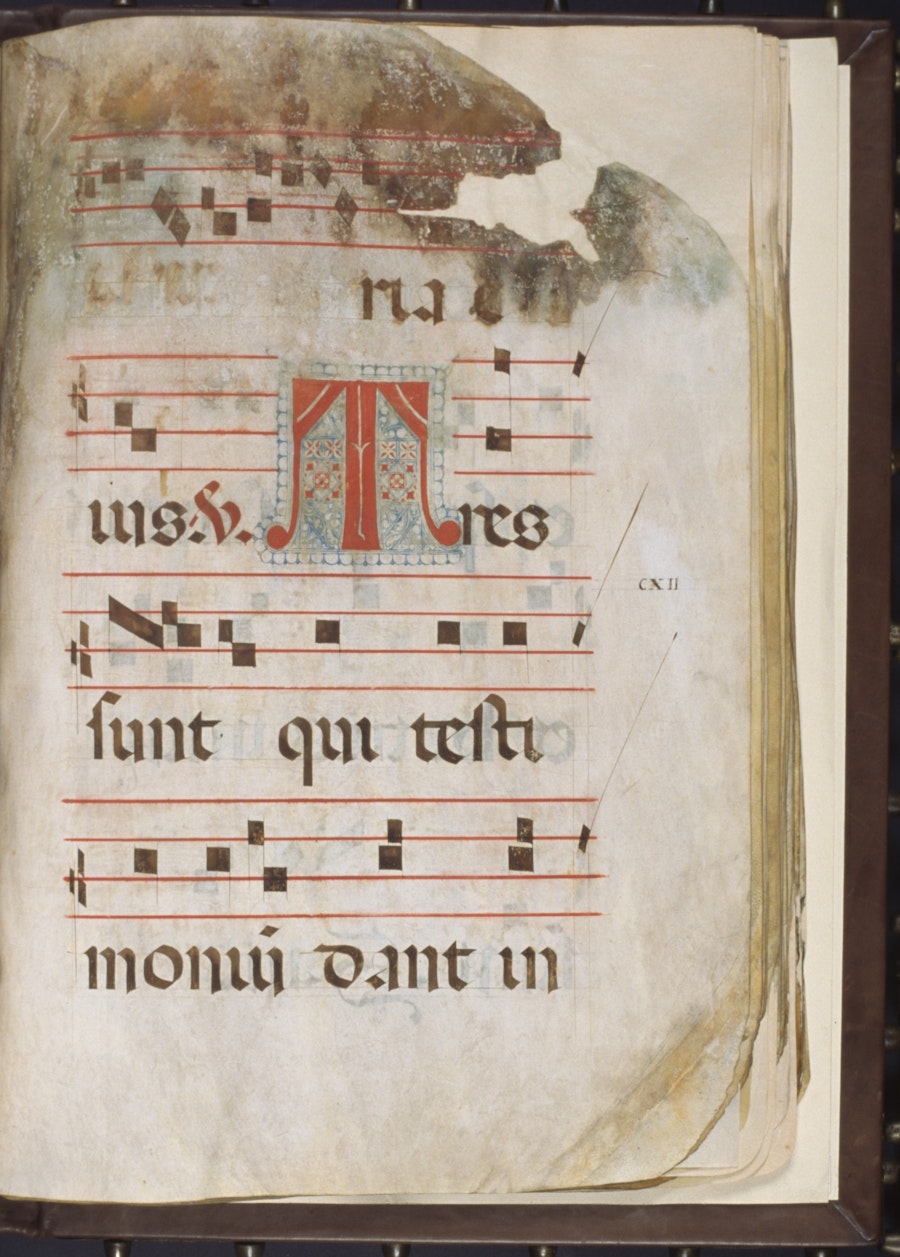 ria e
ius. ℣. Tres
CXII
sunt qui testi
monium dant in